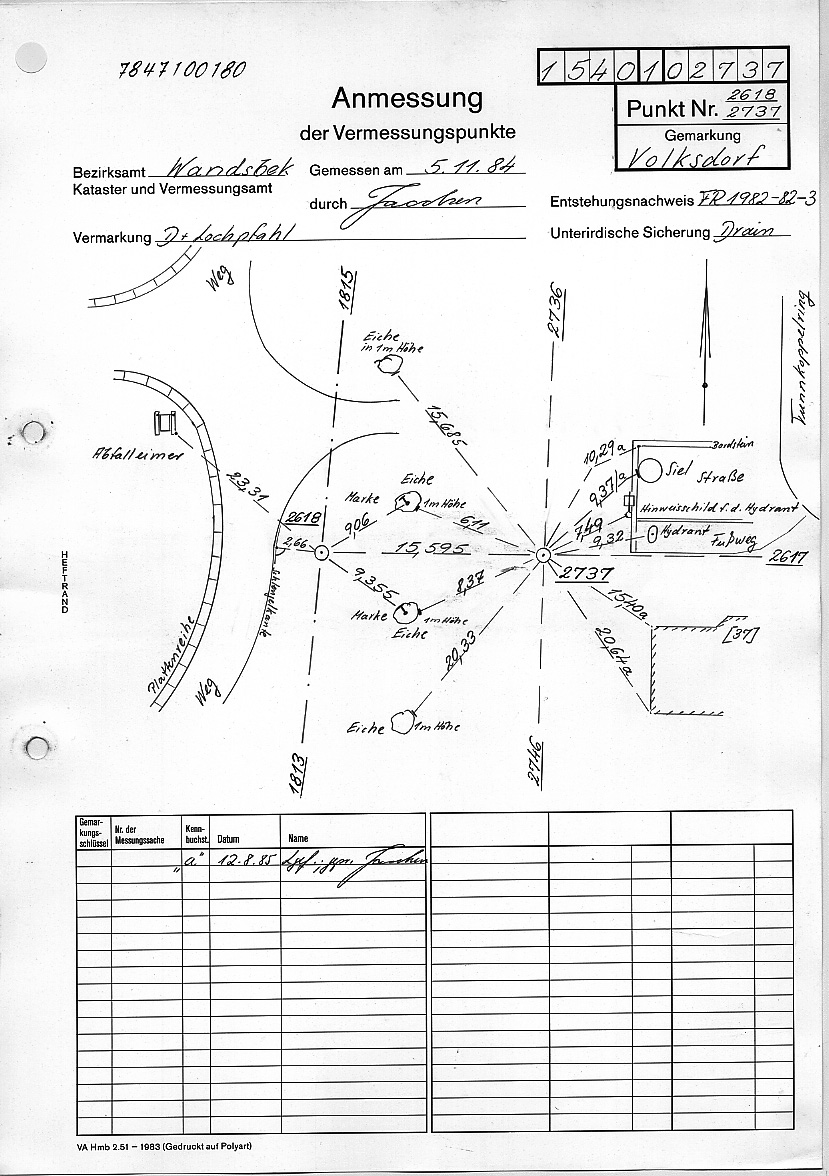 7847100180
1540102737
Anmessung
der Vermessungspunkte
Punkt Nr. 2618
2737
Gemarkung
Volksdorf
Bezirksamt Wandsbek
Kataster und Vermessungsamt
Gemessen am 5.11.84
durch
Entstehungsnachweis FR 1982-82-3
Vermarkung D+Lochpfahl
Unterirdische Sicherung Drain
Weg
1815
2736
Eiche
in 1m Höhe
Tunnkoppelring
15,685
Abfalleimer
23,31
10,29a
Bordstein
Siel
Straße
9,37a
Eiche
Marke
1m Höhe
Hinweisschild f. d. Hydrant
2618
9,06
6,11
7,49
Hydrant
9,32
Fußweg
2,66
15,595
2617
2737
9,355
8,37
15,40a
Marke
1m Höhe
Eiche
20,33
20,64a
[37]
Plattenreihe
Weg
Eiche
1m Höhe
1813
2746
HEFTRAND
Gemar-
kungs-
schlüssel
Nr. der
Messungssache
Kenn-
buchst.
Datum
Name
„a“
12.8.85
VA Hmb 2.51 – 1983 (Gedruckt auf Polyart)